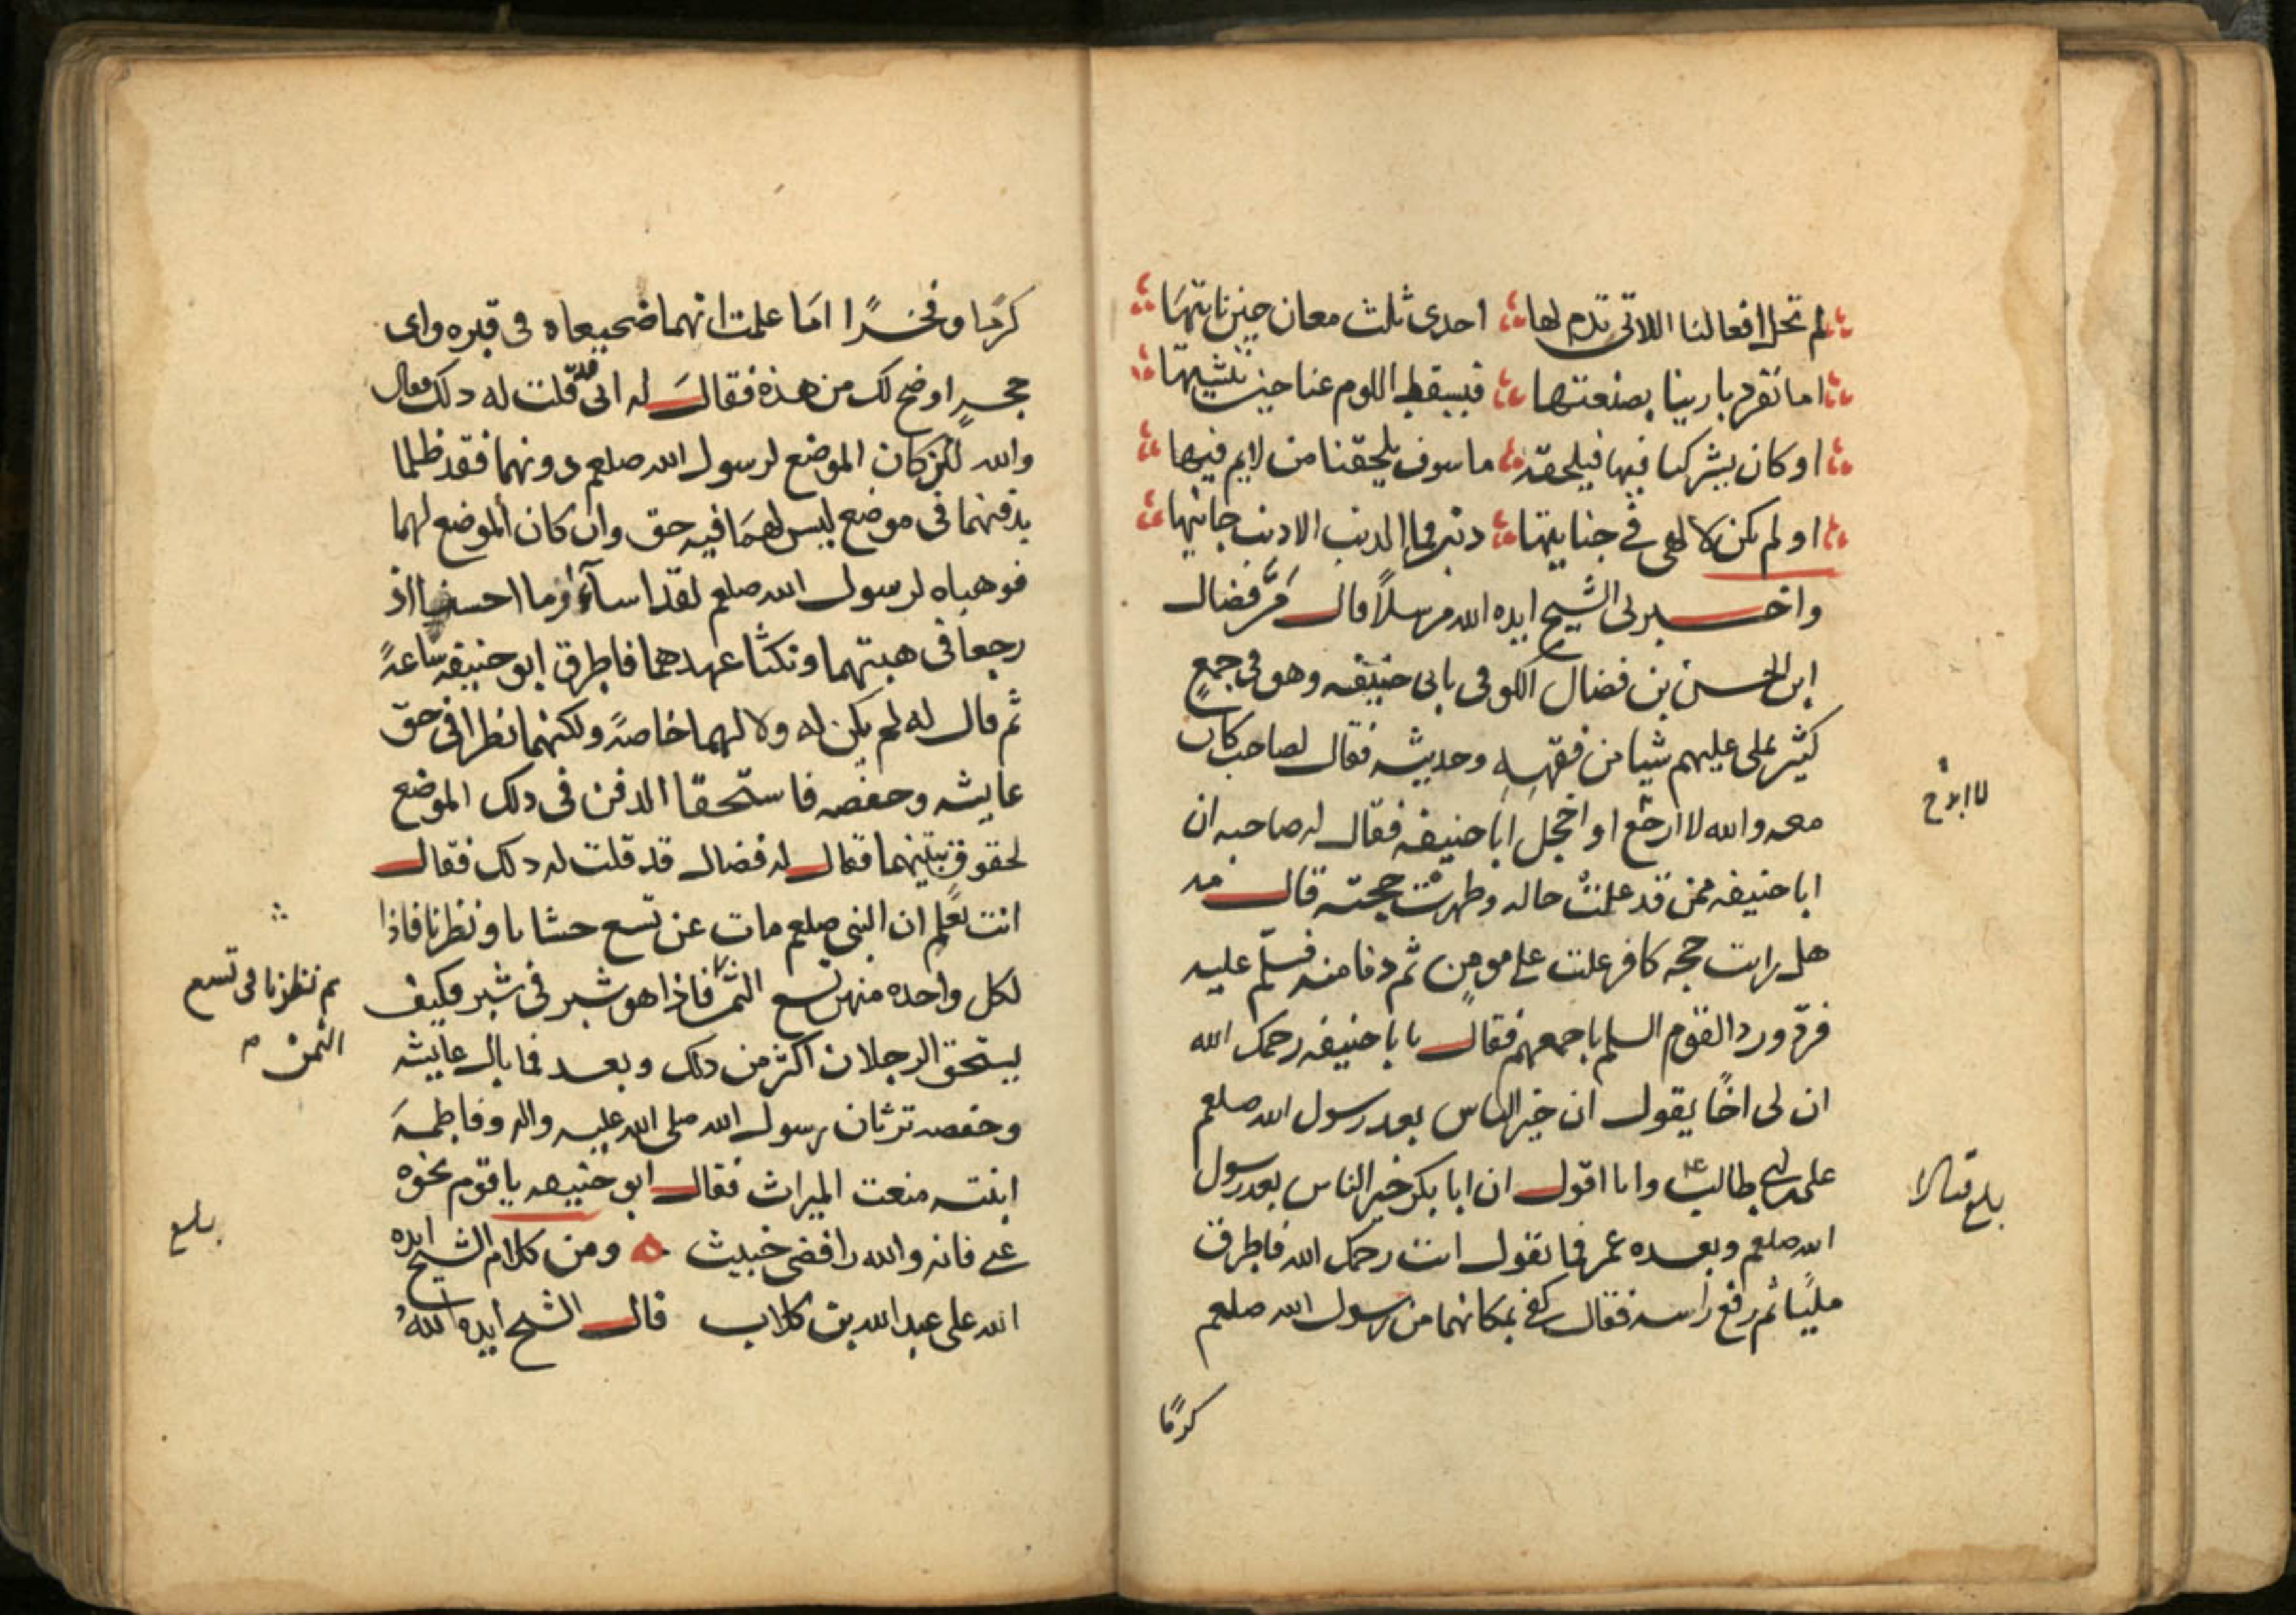 لم تخل افعالنا اللاتي نذم لها احدى ثلث معان حين ناتيها
اما تفرد بارينا بصنعتها فيسقط اللوم عنا حين ننشيها
او كان يشركنا فيها فيلحقه ما سوف يلحقنا من لايم فيها
او لم يكن لالهي في جنايتها ذنب فما الذنب الا ذنب جانيها
واخبرني الشيخ ايده الله مرسلاً قال مرَّ فضال
ابن الحسن بن فضال الكوفي بابي حنيفه وهو في جمعٍ
كثير يملي عليهم شيا من فقهه وحديثه فقال لصاحب كان
معه والله لا ارجع او اخجل ابا حنيفه فقال له صاحبه ان
ابا حنيفه ممن قد علمتْ حاله وظهرت حجته قال مه
هل رايت حجه كافر علت على مومن ثم دنا منه فسلّم عليه
فردّ ورد القوم السلم باجمعهم فقال يا با حنيفه رحمك الله
ان لي اخًا يقول ان خير الناس بعد رسول الله صلعم
علي بن ابي طالب ع م وانا اقول ان ابا بكر خير الناس بعد رسول
الله صلعم وبعده عمر فما تقول انت رحمك الله فاطرق
مليًا ثم رفع راسه فقال كفى بمكانهما من رسول الله صلعم
كرمًا
لا ابرح
بلغ قبالا
كرمًا وفخرًا اما علمت انهما ضجيعاه في قبره واى
حجةٍ اوضح لك من هذه فقال له اني قد قلت له ذلك فقال
والله لئن كان الموضع لرسول الله صلعم دونهما فقد ظلما
بدفنهما في موضع ليس لهما فيه حق وان كان الموضع لهما
فوهباه لرسول الله صلعم لقد اساآ وما احسنا اذ
رجعا في هبتهما ونكثا عهدهما فاطرق ابو حنيفه ساعةً
ثم قال له لم يكن له ولا لهما خاصةً ولكنهما نظرا في حق
عايشه وحفصه فاستحقا الدفن في ذلك الموضع
لحقوق بنتيهما فقال له فضال قد قلت له ذلك فقال
انت تعلم ان النبي صلعم مات عن تسع حشايا ونظرنا فاذا
لكل واحده منهن تسع الثمن فاذا هو شبر في شبر فكيف
يستحق الرجلان اكثر من ذلك وبعد فما بال عايشه
وحفصه ترثان رسول الله صلى الله عليه واله وفاطمه
ابنته منعت الميراث فقال ابو حنيفه يا قوم نحوه
عني فانه والله رافضي خبيث ه ومن كلام الشيخ ايده
الله على عبد الله بن كلاب قال الشيخ ايده اللهُ
ثم نظرنا في تسع
الثمن
بلغ